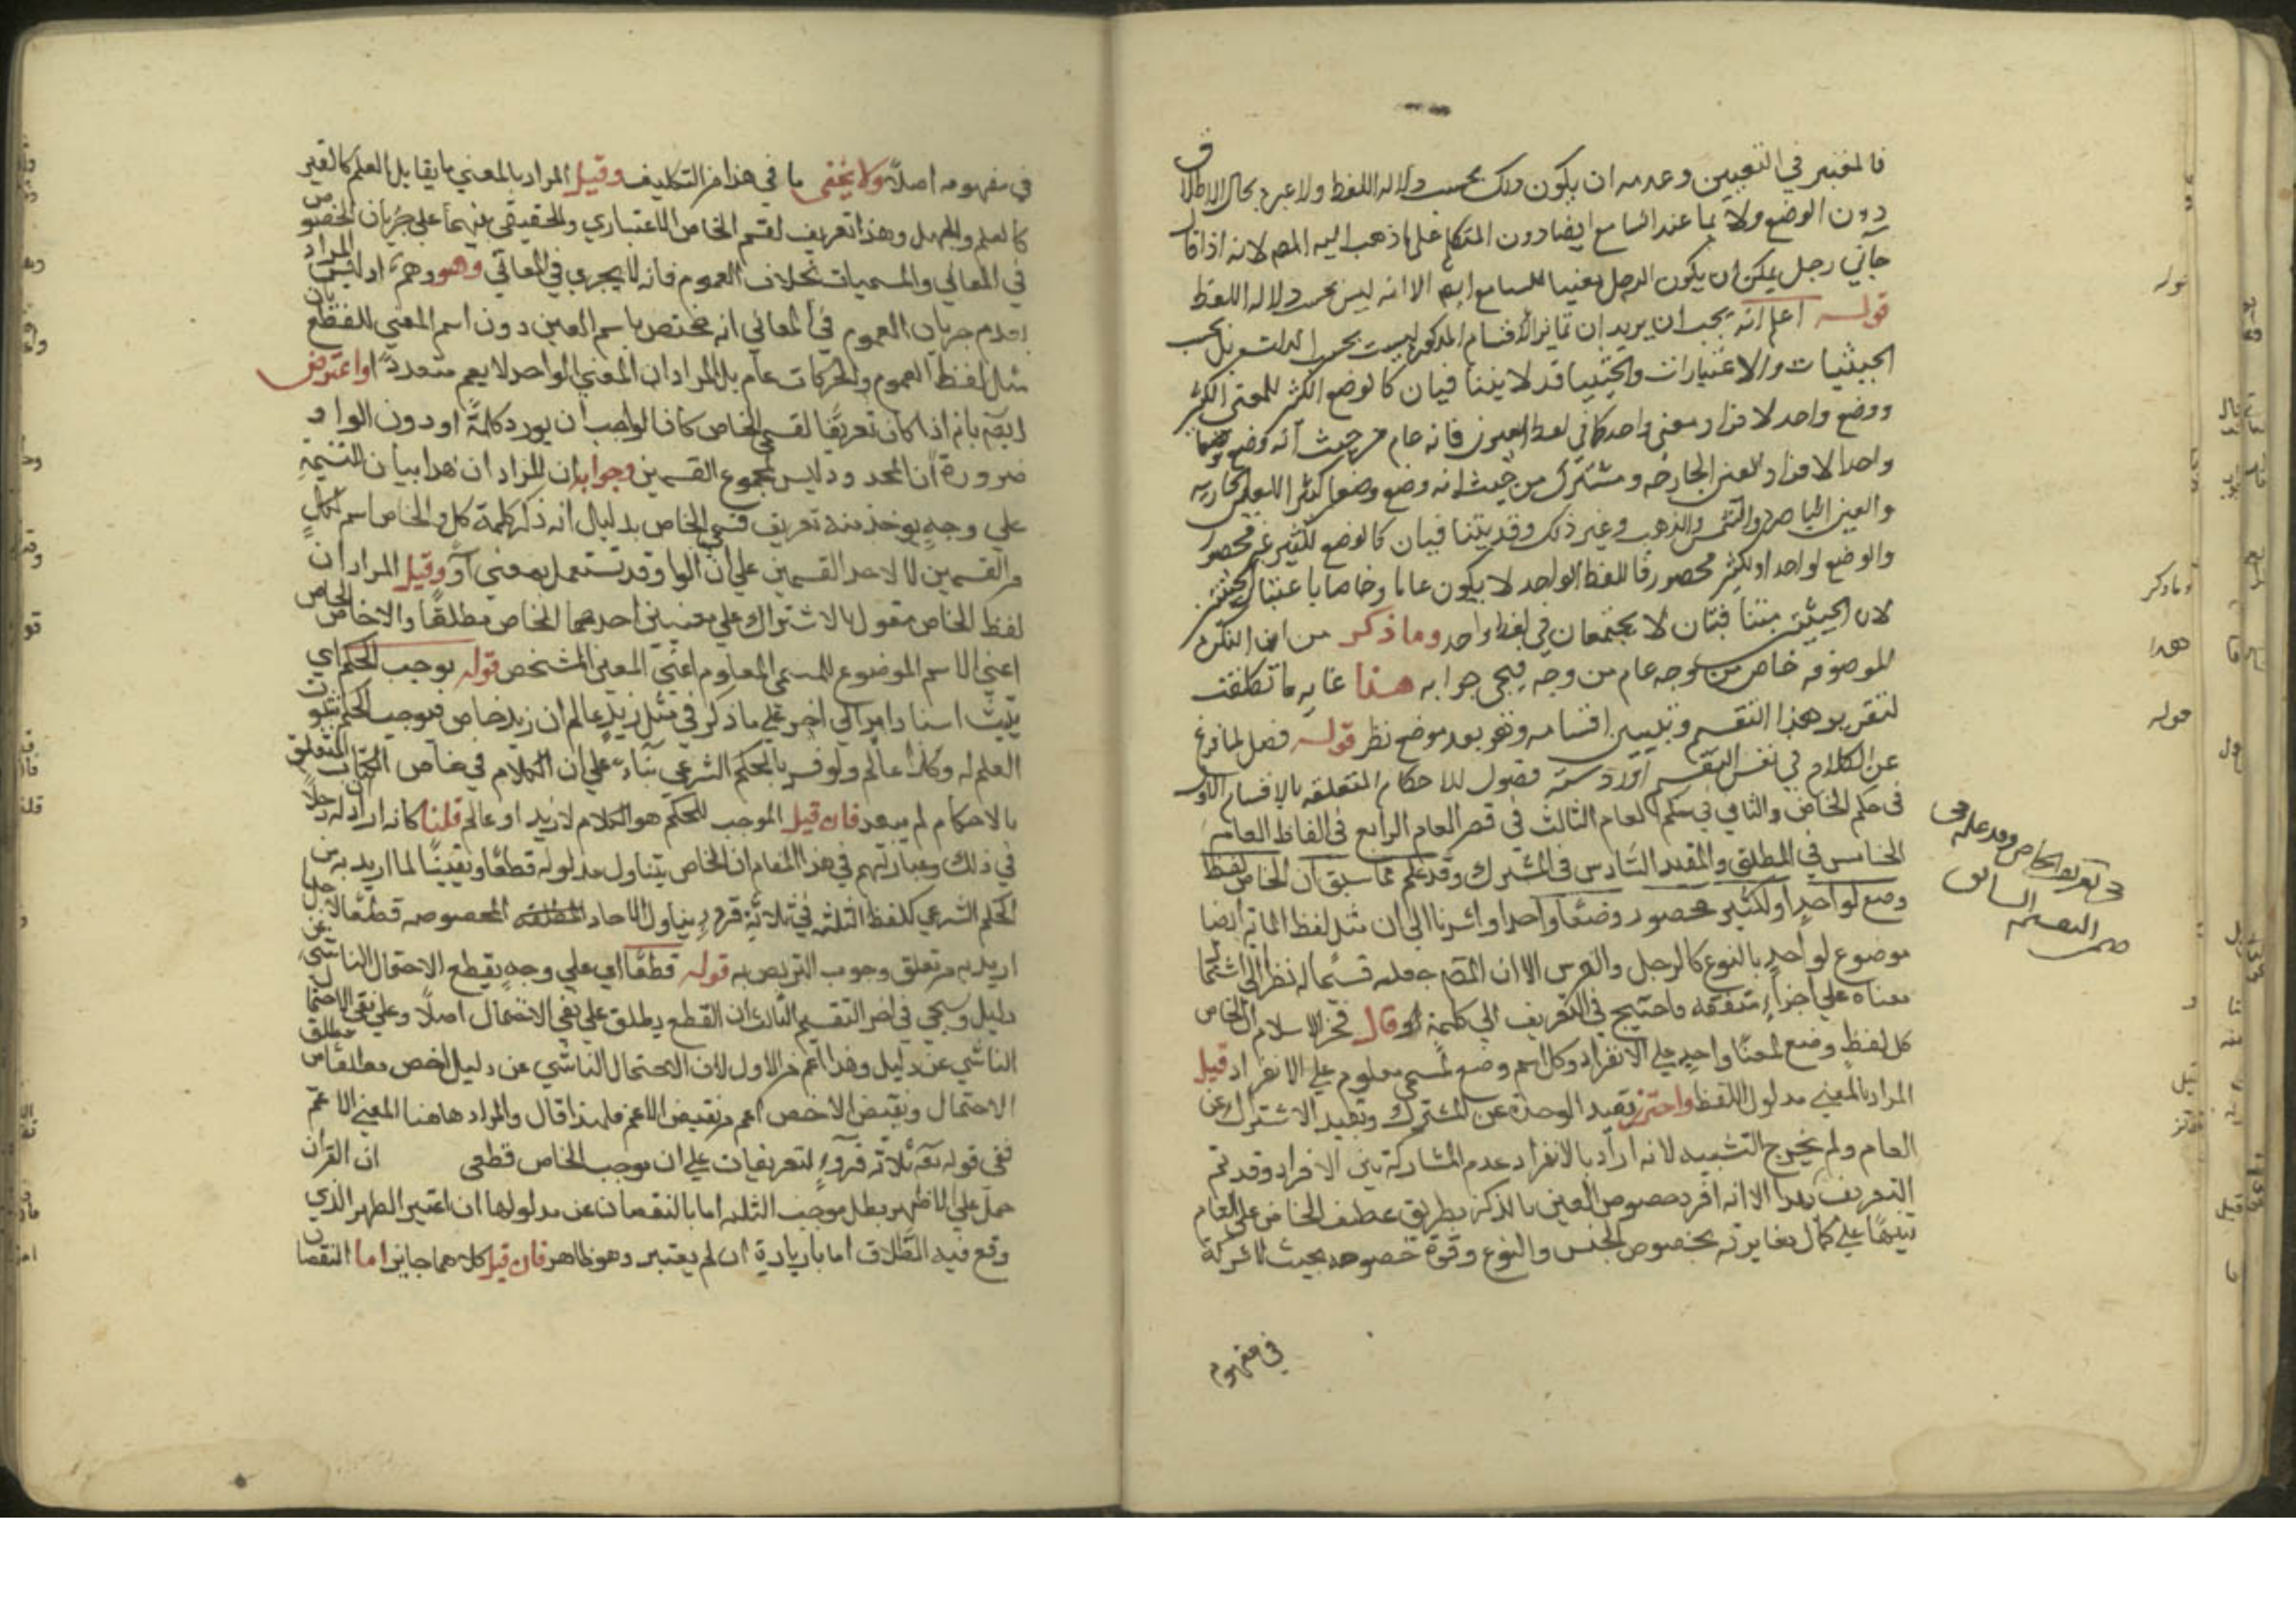 فالمعتبر في التعيين وعدمه ان يكون ذلك بحسب دلالة اللفظ ولا عبرة بحال الاطلاق
دون الوضع ولا بما عند السامع ايضا دون المتكلم على ما ذهب اليه المص لانه اذا قال
جاني رجل يمكن ان يكون الرجل معينا للسامع ايضا الا انه ليس بحسب دلالة اللفظ
قوله اعلم انه يجب ان يريد ان تمايز الاقسام المذكورة ليست بحسب الذات بل بحسب
الحيثيات والاعتبارات والحيثيتان قد لا يتنافيان كالوضع الكثير للمعنى الكثير
ووضع واحد لافراد معنى واحد كما في لفظ العيون فانه عام من حيث انه وضع وضعا
واحدا لافراد العين الجارحه ومشترك من حيث انه وضع وضعا كثيرا للعين الجاريه
والعين الباصرة والشمس والذهب وغير ذلك وقد يتنافيان كالوضع للكثير غير محصور
والوضع لواحد او لكثير محصور فاللفظ الواحد لا يكون عاما وخاصا باعتبار الحيثيتين
لان الحيثيتين متنافيتان لا يجتمعان في لفظ واحد وما ذكر من ان النكرة
الموصوفه خاص من وجه عام من وجه فيجي جوابه هذا غاية ما تكلفت
لتقرير هذا التقسيم وتبيين اقسامه وفيه بعد موضع نظر قوله فصل لما فرغ
عن الكلام في نفس التقسيم اورد ستة فصول للاحكام المتعلقه بالاقسام الاول
في حكم الخاص والثاني في حكم العام الثالث في قصر العام الرابع في الفاظ العام
الخامس في المطلق والمقيد السادس في المشترك وقد علم مما سبق ان الخاص لفظ
وضع لواحد او لكثير محصور وضعا واحدا واشرنا الى ان مثل لفظ الماية ايضا
موضوع لواحد بالنوع كالرجل والفرس الا ان المص جعله قسيما له نظرا الى اشتمال
معناه على اجزاء متفقه فاحتيج في التعريف الى كلمة او وقال فخر الاسلام الخاص
كل لفظ وضع لمعنا واحد على الانفراد وكل اسم وضع لمسمى معلوم على الانفراد قيل
المراد بالمعنى مدلول اللفظ واحترز بقيد الوحدة عن المشترك وبقيد الاشتراك عن
العام ولم يخرج التثنيه لانه اراد بالانفراد عدم المشاركة بين الافراد وقد تم
التعريف بهذا الا انه افرد خصوص العين بالذكر بطريق عطف الخاص على العام
تنبيها على كمال مغايرته بخصوص الجنس والنوع وقوة خصوصه بحيث لا شركة
في مفهوم
في تعريف الخاص وقد علم في
التقسيم السابق
صح
قوله
وما ذكر
هذا
قوله
في مفهومه اصلا ولا يخفى ما في هذا من التكليف وقيل المراد بالمعنى ما يقابل العلم كالغير
كالعلم والجهل وهذا تعريف لقسمي الخاص الاعتباري والحقيقي تنبيها على جريان الخصوص
في المعاني والمسميات بخلاف العموم فانه لا يجري في المعاني وهو وهم اذ ليس المراد
بعدم جريان العموم في المعاني انه مختص باسم العين دون اسم المعنى للقطع بان
مثل لفظ العموم والحركات عام بل المراد ان المعنى الواحد لا يعم متعددا واعترض
ايضا بانه اذا كان تعريفا لقسمي الخاص كان الواجب ان يورد كلمة او دون الواو
ضرورة ان المحدود ليس مجموع القسمين وجوابه ان المراد ان هذا بيان التسمية
على وجه يوخذ منه تعريف قسمي الخاص بدليل انه ذكر كلمة كل والخاص اسم لكل
من القسمين لا لاحد القسمين على ان الواو قد تستعمل بمعنى او وقيل المراد ان
لفظ الخاص مقول بالاشتراك على معنيين احدهما الخاص مطلقا والاخر خاص الخاص
اعنى الاسم الموضوع للمسمى المعلوم اعنى المعنى المشخص قوله يوجب الحكم اي
يثبت اسناد امر الى اخر على ما ذكر في مثل زيد عالم ان زيد خاص فيوجب الحكم بثبوت
العلم له وكذا عالم ولو فسر بالحكم الشرعي بناء على ان الكلام في خاص الكتاب المتعلق
بالاحكام لم يبعد فان قيل الموجب للحكم هو الكلام لا زيد او عالم قلنا كانه اراد له دخلا
في ذلك وعبارتهم في هذا المقام ان الخاص يتناول مدلوله قطعا ويقينا لما اريد به من
الحكم الشرعي كلفظ الثلثه في ثلاثة قروء يتناول الاحاد المخصوصه قطعا لاجل ما
اريد به من تعلق وجوب التربص به قوله قطعا اي على وجه يقطع الاحتمال الناشي عن
دليل وسيجي في اخر التقسيم الثالث ان القطع يطلق على نفي الاحتمال اصلا وعلى نفي الاحتمال
الناشي عن دليل وهذا اعم من الاول لان الاحتمال الناشي عن دليل اخص من مطلق
الاحتمال ونقيض الاخص اعم من نقيض الاعم فلهذا قال والمراد هاهنا المعنى الاعم
ففي قوله تعالى ثلاثة قروء لتعريفات على ان موجب الخاص قطعي ان القران
حمل على الاظهر بطل موجب الثلثه اما بالنقصان عن مدلولها ان اعتبر الطهر الذي
وقع فيه الطلاق اما بالزيادة ان لم يعتبر وهو ظاهر فان قيل كلاهما جايز اما النقصان